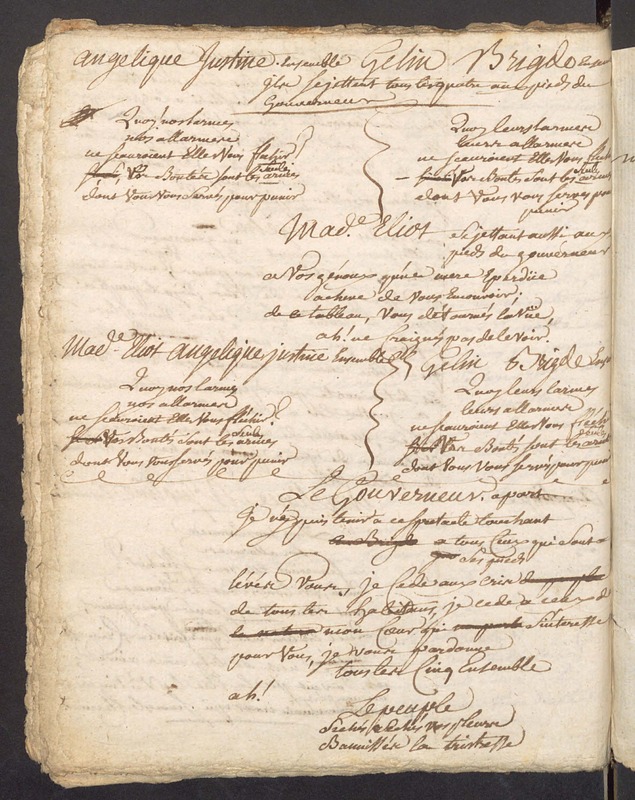 angelique Justine ensemble Gelin Brigde
ils se jettent tous les quatre aux pieds du
Gouverneur
Quoy nos larmes
nos allarmes
ne scauroient Elle Vous flechir?
Vos Bontés sont les seules armes
dont Vous Vous servés pour punir
Quoy leurs larmes
leurs allarmes
ne scauroient Elle Vous
Vos Bontés sont les seules armes
dont Vous Vous servés pour
punir
Mad.e Eliot se jettant aussi aux
pieds du gouverneur
a Vos génoux qu'une mere Eperdüe
acheve de Vous Emouvoir;
de ce tableau, Vous détournés la Vüe,
ah! ne Craignés pas de le Voir
Mad.e Eliot angelique justine Ensemble Gelin Brigde
Quoy nos larmes
nos allarmes
ne scauroient Elle Vous flechir?
Vos Bontés sont les seules armes
dont Vous Vous servés pour punir
Quoy leurs larmes
leurs allarmes
ne scauroient Elle Vous flechir
Vos Bontés sont les seules armes
dont Vous Vous servés pour punir
Le Gouverneur. a part
je n'y puis tenir a ce spectacle touchant
a Brigde a tous Ceux qui sont
a Ses pieds
levés Vous, je Cede aux cris du peuple
de tous les habitans, je cede a ceux de
la nature mon Cœur qui me parle S'interesse
pour Vous, je vous pardonne
tous les Cinq Ensemble
ah!
Le peuple
Sechés Sechés vos pleurs
Bannissés la tristesse